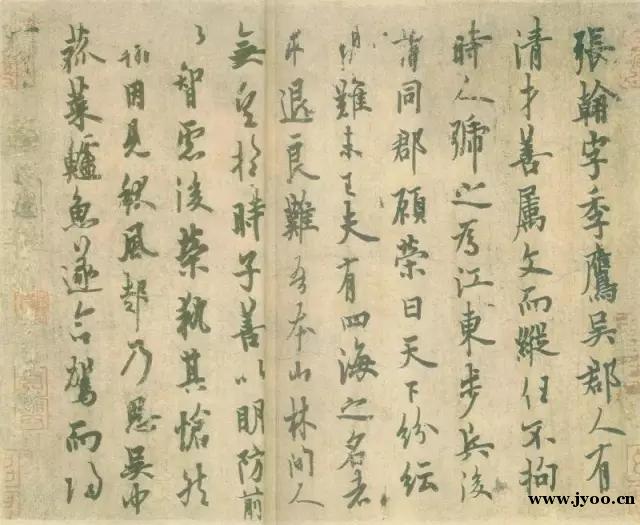 張翰字季鷹吳郡人有
清才善属文而縱任不拘
時人號之為江東步兵後
謂同郡顧榮曰天下紛紜
禍難未已夫有四海之名者
求退良難吾本山林間人
無望於時子善以明防前
以智慮後榮執其愴然
翰因見秋風起乃思吳中
菰菜鱸魚遂命駕而歸
www.jyoo.cn